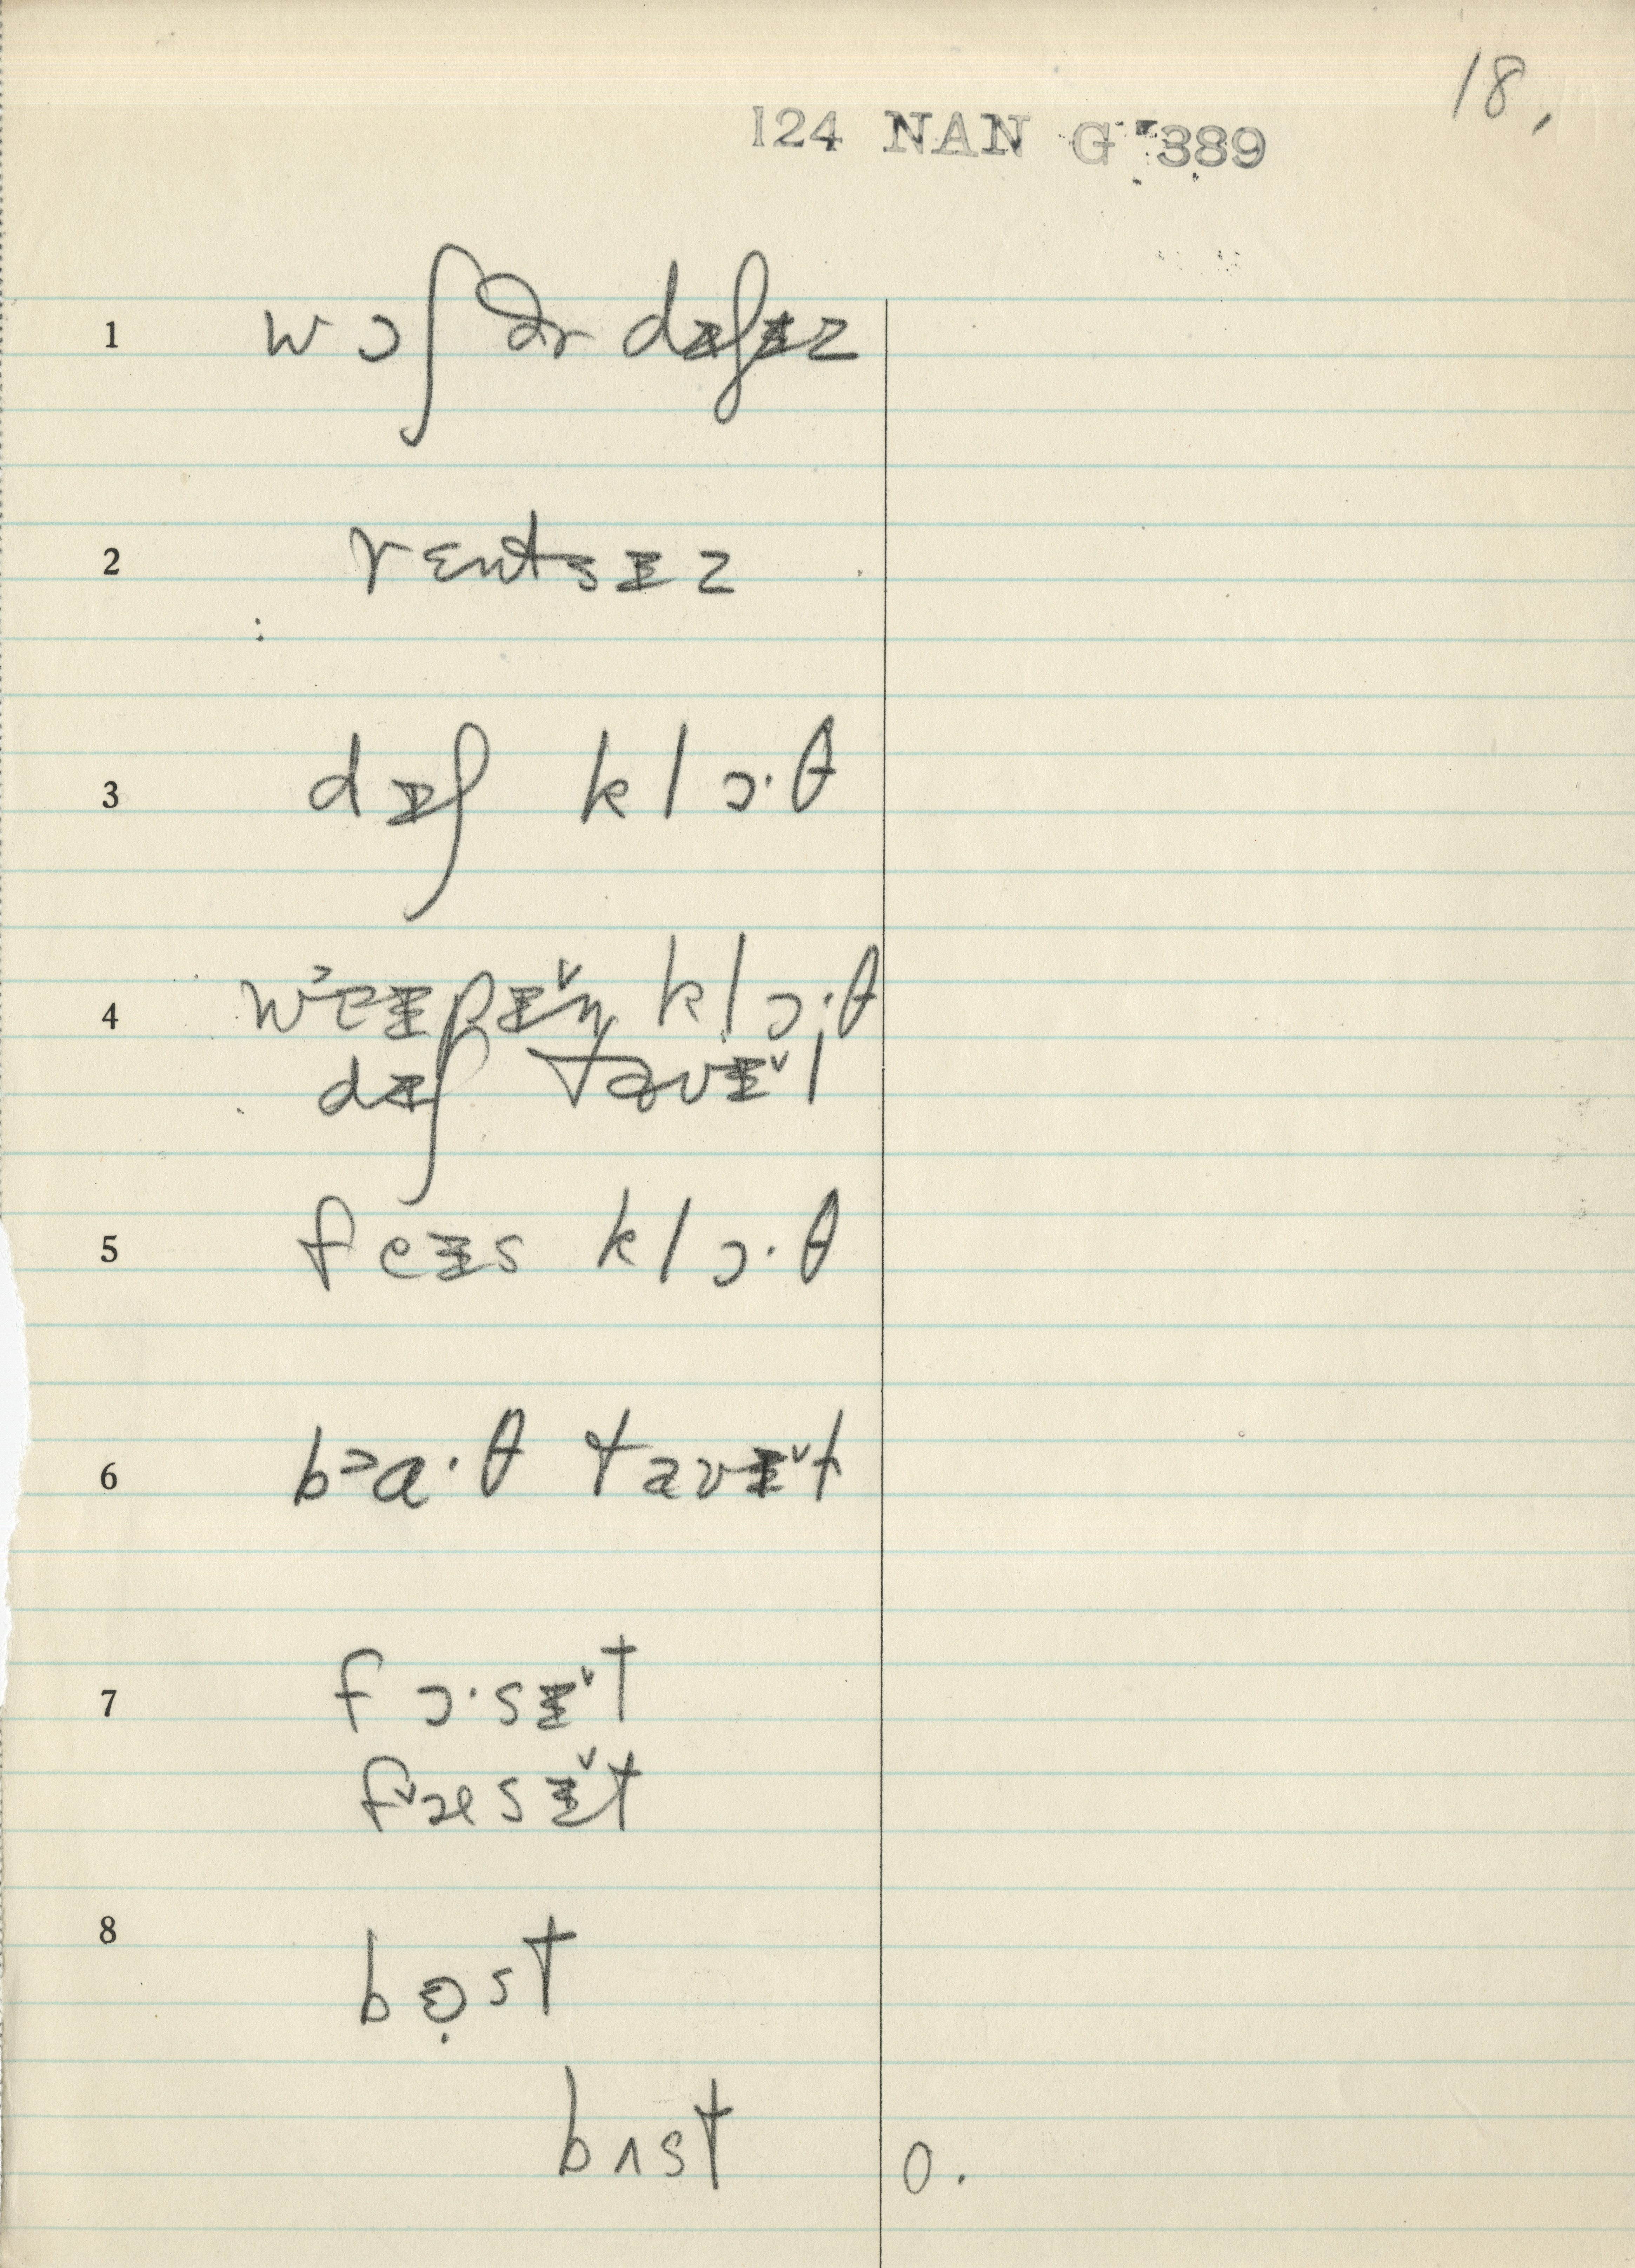 18.
124 NAN G 389
1 wɔʃ ðr dɪʃɪz
2 rɛntsɪz
3 dɪʃ klɔ·θ
4 wᵊeɪpɪ˅ŋ klɔ·θ
dɪʃ taʊɪ˅l
5 feɪs klɔ·θ
6 bᵊa·θ taʊɪ˅ɫ
7 fɔ·sɪ˅t
f˅æsɪ˅t
8 bɔ̣st
bʌst o.